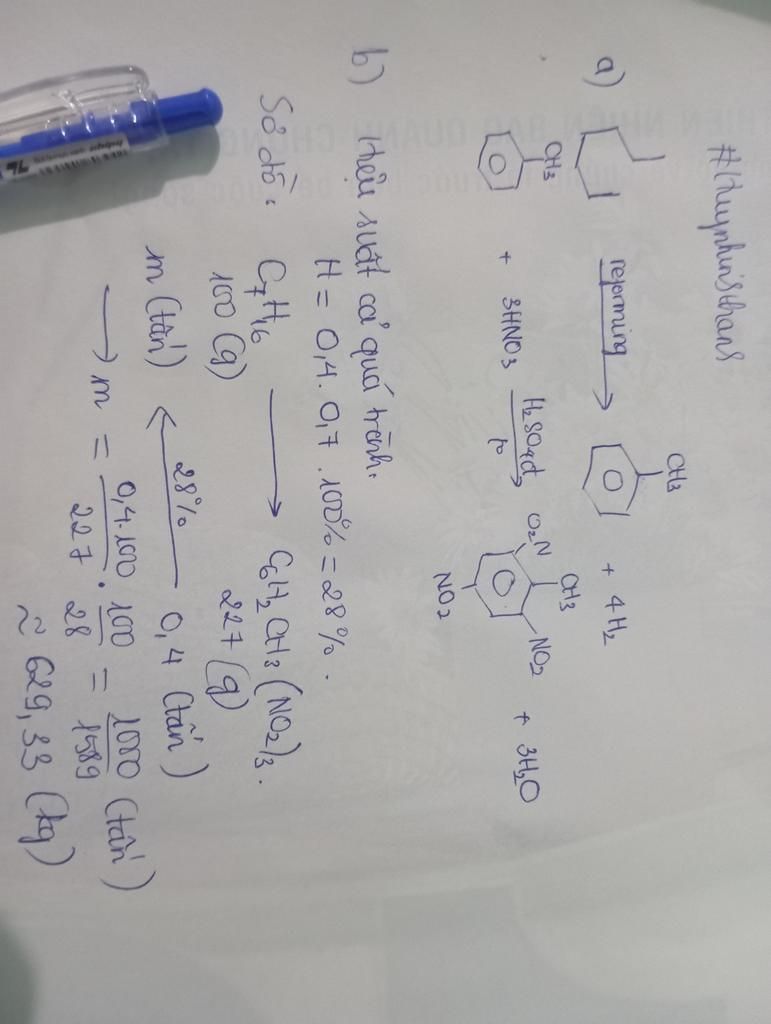 #Huynhinsthans
a)
reforming
CH3
+ 4H2
CH3
+ 3HNO3
H2SO4đ, t°
O2N
CH3
NO2
NO2
+ 3H2O
b) Hiệu suất cả quá trình.
H = 0,4 . 0,7 . 100% = 28%.
Sơ đồ:
C7H16 ⟶ C6H2CH3(NO2)3.
100 (g) 227 (g)
m (tấn) ⟵ 28% 0,4 (tấn)
⟶ m = 0,4.100/227 . 100/28 = 1000/1589 (tấn)
≈ 629,33 (kg)